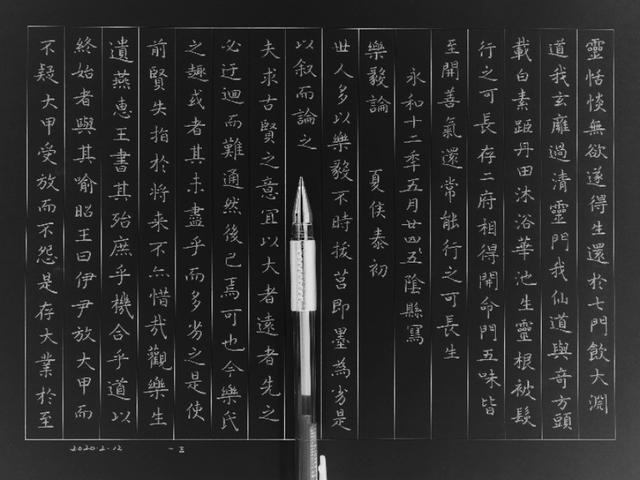 靈恬惔無欲遂得生還於七門飲大淵
道我玄靡過清靈門我仙道與奇方頭
載白素距丹田沐浴華池生靈根被髮
行之可長存二府相得開命門五味皆
至開善氣還常能行之可長生
永和十二年五月廿四五陰縣寫
樂毅論 夏侯泰初
世人多以樂毅不時拔莒即墨為劣是
以叙而論之
夫求古賢之意宜以大者遠者先之
必迂迴而難通然後已焉可也今樂氏
之趣或者其未盡乎而多劣之是使
前賢失指於將來不亦惜哉觀樂生
遺燕惠王書其殆庶乎機合乎道以
終始者與其喻昭王曰伊尹放大甲而
不疑大甲受放而不怨是存大業於至
2020.2.12